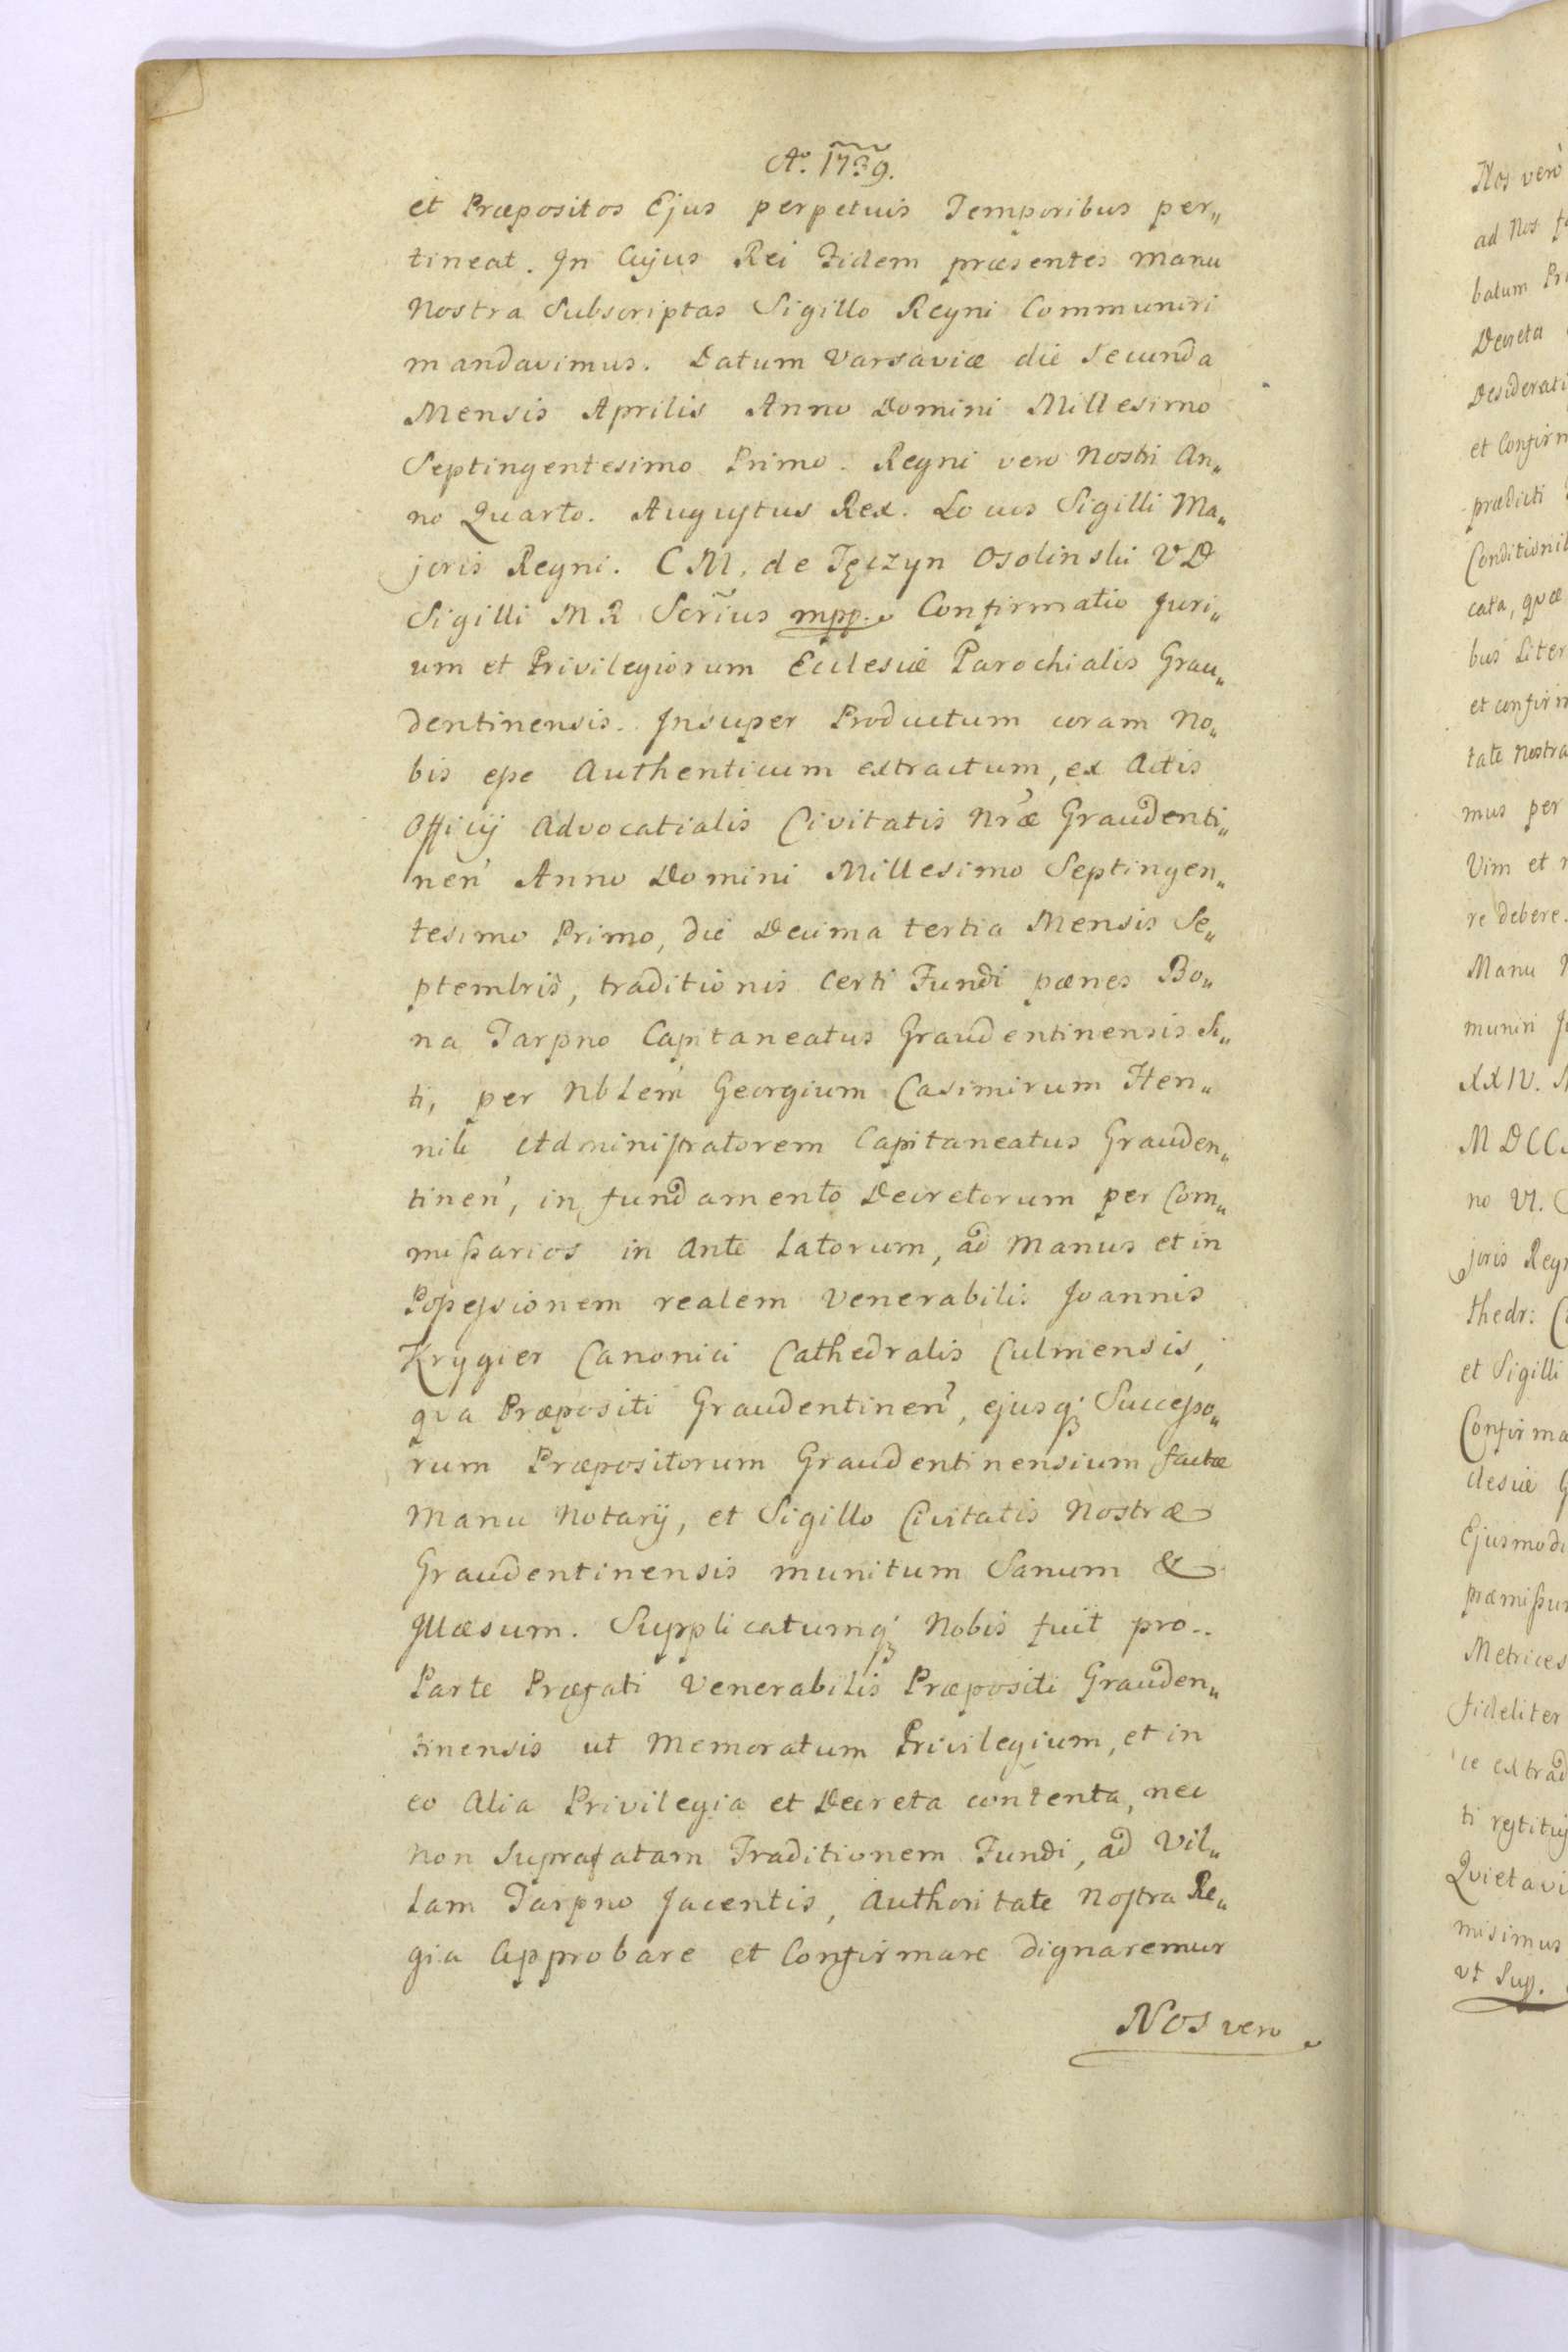 Aº. 1739.
et Præpositos Ejus perpetuis Temporibus per„
tineat. In Cujus Rei Fidem præsentes manu
Nostra Subscriptas Sigillo Regni Communiri
mandavimus. Datum Varsaviæ die Secunda
Mensis Aprilis Anno Domini Millesimo
Septingentesimo Primo. Regni vero Nostri An„
no Quarto. Augustus Rex. Locus Sigilli Ma„
joris Regni. C M. de Tęczyn Osolinski V D
Sigilli M R Scr̃ius mpp. Confirmatio Juri„
um et Privilegiorum Ecclesiæ Parochialis Grau„
dentinensis. Insuper Productum coram No„
bis esse Authenticum extractum, ex Actis
Officij Advocatialis Civitatis Nr̃æ Graudenti„
nen̉ Anno Domini Millesimo Septingen„
tesimo Primo, die Decima tertia Mensis Se„
ptembris, traditionis Certi Fundi pænes Bo„
na Tarpno Capitaneatus Graudentinensis Si„
ti, per Nblem̉ Georgium Casimirum Hen„
nik Administratorem Capitaneatus Grauden„
tinen̉, in fundamento Decretorum per Com„
missarios in Ante Latorum, ad Manus et in
Possessionem realem Venerabilis Joannis
Krygier Canonici Cathedralis Culmensis,
qva Præpositi Graudentinen̉, ejusq; Successo„
rum Præpositorum Graudentinensium factæ
Manu Notarij, et Sigillo Civitatis Nostræ
Graudentinensis munitum Sanum &
Illæsum. Supplicatumq; Nobis fuit pro..
Parte Præfati Venerabilis Præpositi Grauden„
tinensis ut Memoratum Privilegium, et in
eo Alia Privilegia et Decreta contenta, nec
non Suprafatam Traditionem Fundi, ad Vil„
lam Tarpno Jacentis, Authoritate Nostra Re„
gia Approbare et Confirmare dignaremur
Nos vero
Nos verò
ad Nos
batum
Decreta
et Confirm
prædicti
cata, quæ
bus Liter
et confirm
tate Nostra
mus per
Vim et
re debere.
Manu
muniri
XXIV.
M DCC
no VI.
joris Reg
thedr:
et Sigilli
Confirma
clesiæ
Ejusmodi
præmissu
Metrices
fideliter
ce extrad
Qvietavi
misimus
vt Sup.